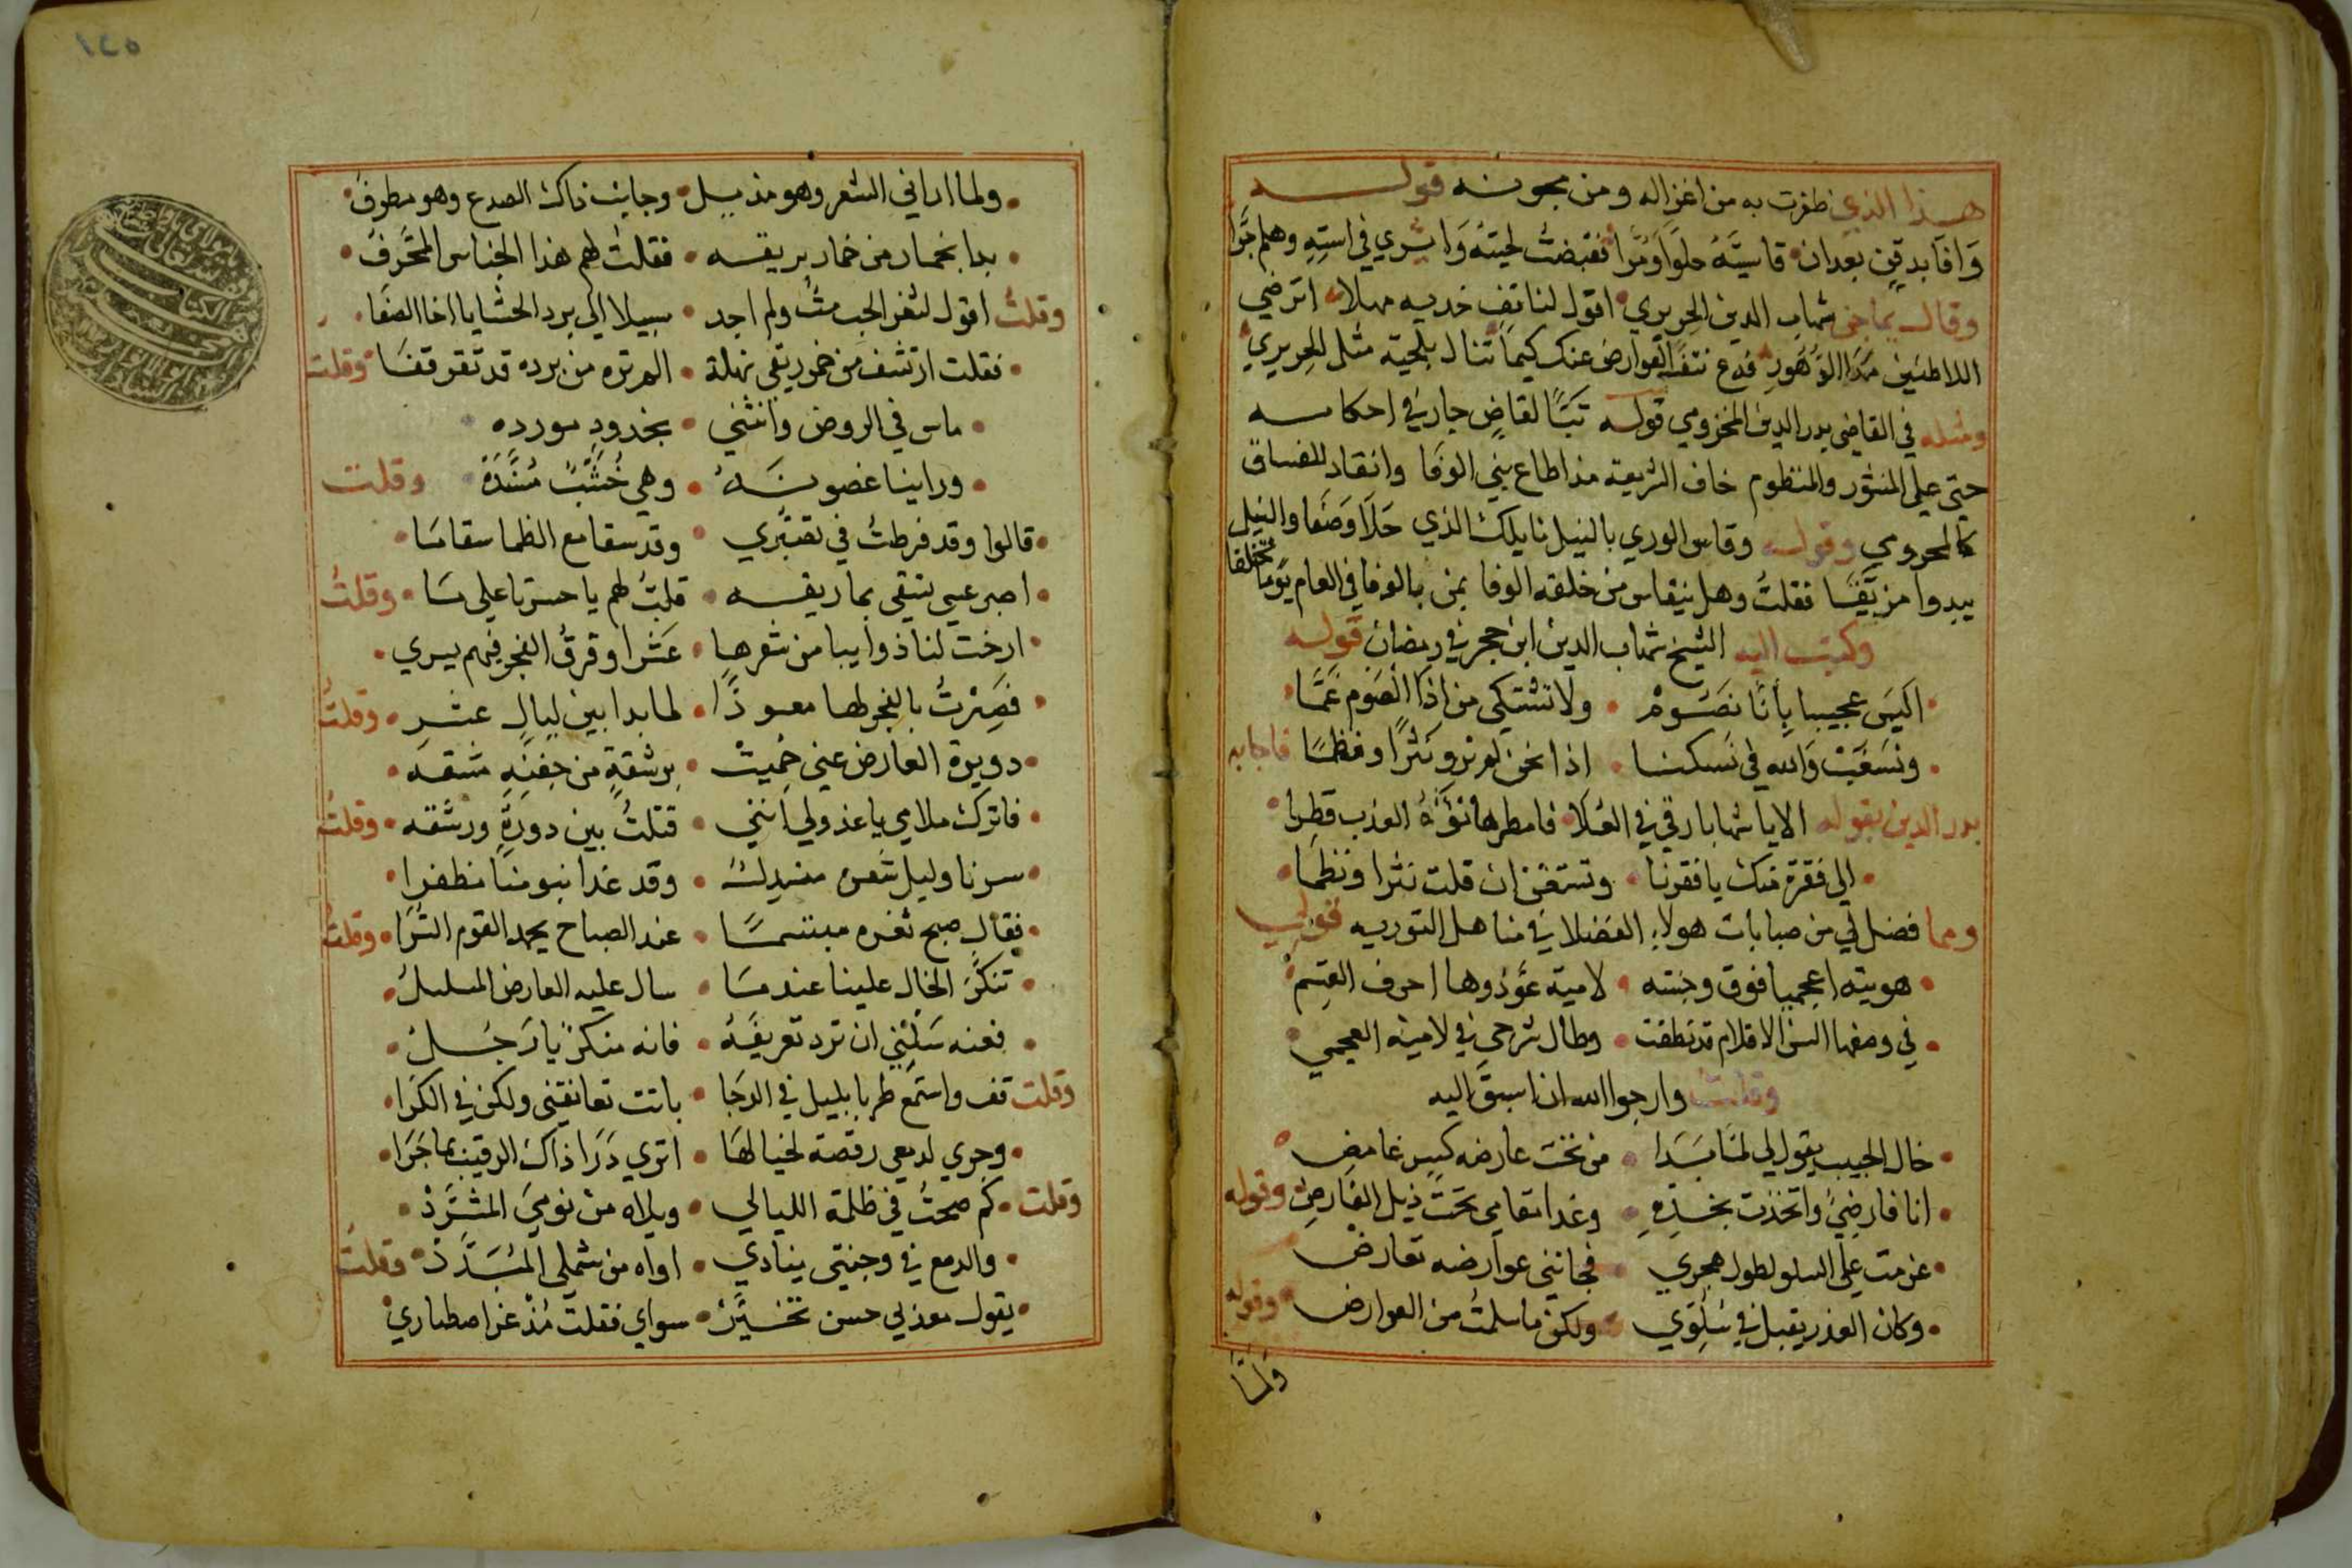 هذا الذي ظفرت به من اغزاله ومن مجونه قوله
وافا بدقن بعد ان قاسيته حلوا ومرا فقبضت لحيته وايري في استه وهلم جرا
وقال يماجن شهاب الدين الحريري اقول لناتف خديه مهلا اترضي
اللاطنين الدهور فدع نتف العوارض عنك كيما تنال بلحية مثل الحريري
ومثله في القاضي بدر الدين المخزومي قوله تبا لقاض جار في احكامه
حتى على المنثور والمنظوم خاف الشريعة مذ اطاع بني الوفا وانقاد للفساق
كالمحرومي وقوله وقاس الوري بالنيل نايلك الذي حلا وصفا والنيل
يبدوا مرنقا فقلت وهل ينقاس من خلقه الوفا بمن بالوفا في العام يوما تخلقا
وكتب اليه الشيخ شهاب الدين ابن حجر في رمضان قوله
اليس عجيبا بانا نصوم ولا نشتكي من اذا الصوم غما
ونسغب والله في نسكنا اذا نحن لم نرو نثرا ونظما فاجابه
بدر الدين بقوله الا يا شهابا رقي في العلا فامطرنا نوه العذب قطرا
الى فقرة منك يا فقرنا وتستغن ان قلت نثرا ونظما
ومما فضل لي من صبابات هولاء الفضلا في مناهل التوريه قولي
هويته اعجميا فوق وجنته لامية عوذوها احرف القسم
في وصفها السن الاقلام قد نطقت وطال شرحي في لامية العجمي
وقلت وارجوا الله ان اسبق اليه
خال الحبيب يقول لي لما بدا من تحت عارضه كبير غامض
انا فارضي واتخذت بخده وغدا مقامي تحت ذيل الفارض وقوله
عزمت على السلو لطول هجري فجانني عوارضه تعارض
وكان العذر يقبل في سلوي ولكن ما سلمت من العوارض وقوله
ولما
ولما اراني الشعر وهو مذيل وجانب ذاك الصدع وهو مطرف
بدا بخمار من خمار بريقه فقلت لهم هذا الجناس المحرف
وقلت اقول لثغر الحب مت ولم اجد سبيلا الى برد الحشا يا اخا الصفا
فقلت ارتشف من خمر ريقي نهلة الم تره من برده قد تقرقفا وقلت
ماس في الروض وانثني بخدود مورده
وراينا غصونه وهي خشب مسنده وقلت
قالوا وقد فرطت في تصبري وقد سقا مع الظما سقاما
اصبر عسي تشقى بما ريقه قلت لهم يا حسرتا على ما وقلت
ارخت لنا ذوايبا من شعرها عشرا وفرق الفجر فيهم يسري
فصرت بالفجر لها معوذا لما بدا بين ليال عشر وقلت
دويرة العارض عني حميت برشقة من جفنه مشقه
فاترك ملامي يا عذولي انني قتلت بين دورة ورشقه وقلت
سرنا وليل شعره منسدل وقد غدا بنومنا مظفرا
فقال صبح ثغره مبتسما عند الصباح يحمد القوم السرا وقلت
تنكر الخال علينا عندما سال عليه العارض المسلسل
فعنه سلني ان ترد تعريفه فانه منكر يا رجل
وقلت قف واستمع طربا بليل في الدجا باتت تعانقني ولكن في الكرا
وجري لدمعي رقصة لخيالها اتري درا ذاك الرقيب بما جرا
وقلت كم صحت في ظلمة الليالي ويلاه من نومي المشرد
والدمع في وجنتي ينادي اواه من شملي المبدد وقلت
يقول معذبي حسن تخير سواي فقلت مذ عز اصطباري